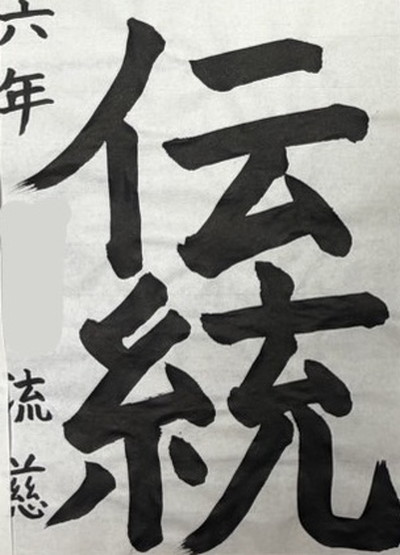 伝統
六年 流慈